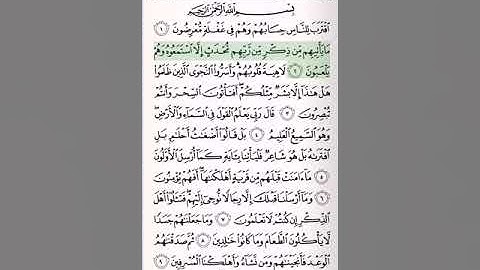 بِسْمِ اللَّهِ الرَّحْمَٰنِ الرَّحِيمِ
ٱقْتَرَبَ لِلنَّاسِ حِسَابُهُمْ وَهُمْ فِي غَفْلَةٍ مُّعْرِضُونَ ١
مَا يَأْتِيهِم مِّن ذِكْرٍ مِّن رَّبِّهِم مُّحْدَثٍ إِلَّا ٱسْتَمَعُوهُ وَهُمْ
يَلْعَبُونَ ٢ لَاهِيَةً قُلُوبُهُمْ وَأَسَرُّوا۟ ٱلنَّجْوَى ٱلَّذِينَ ظَلَمُوا۟
هَلْ هَٰذَآ إِلَّا بَشَرٌ مِّثْلُكُمْ أَفَتَأْتُونَ ٱلسِّحْرَ وَأَنتُمْ
تُبْصِرُونَ ٣ قَالَ رَبِّي يَعْلَمُ ٱلْقَوْلَ فِي ٱلسَّمَآءِ وَٱلْأَرْضِ
وَهُوَ ٱلسَّمِيعُ ٱلْعَلِيمُ ٤ بَلْ قَالُوٓا۟ أَضْغَٰثُ أَحْلَٰمٍ بَلِ
ٱفْتَرَىٰهُ بَلْ هُوَ شَاعِرٌ فَلْيَأْتِنَا بِـَٔايَةٍ كَمَآ أُرْسِلَ ٱلْأَوَّلُونَ
٥ مَآ ءَامَنَتْ قَبْلَهُم مِّن قَرْيَةٍ أَهْلَكْنَٰهَآ أَفَهُمْ يُؤْمِنُونَ
٦ وَمَآ أَرْسَلْنَا قَبْلَكَ إِلَّا رِجَالًا نُّوحِيٓ إِلَيْهِمْ فَسْـَٔلُوٓا۟ أَهْلَ
ٱلذِّكْرِ إِن كُنتُمْ لَا تَعْلَمُونَ ٧ وَمَا جَعَلْنَٰهُمْ جَسَدًا
لَّا يَأْكُلُونَ ٱلطَّعَامَ وَمَا كَانُوا۟ خَٰلِدِينَ ٨ ثُمَّ صَدَقْنَٰهُمُ
ٱلْوَعْدَ فَأَنجَيْنَٰهُمْ وَمَن نَّشَآءُ وَأَهْلَكْنَا ٱلْمُسْرِفِينَ ٩